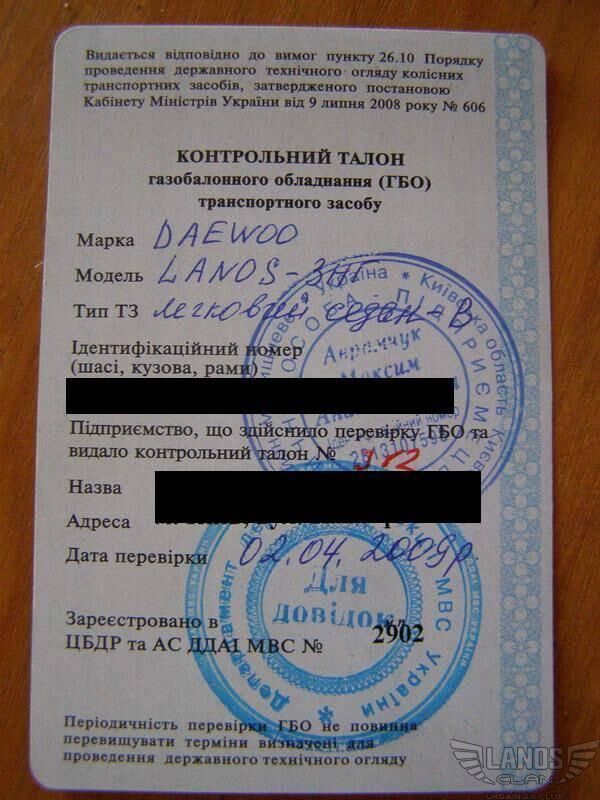 Видається відповідно до вимог пункту 26.10 Порядку
проведення державного технічного огляду колісних
транспортних засобів, затвердженого постановою
Кабінету Міністрів України від 9 липня 2008 року № 606
КОНТРОЛЬНИЙ ТАЛОН
газобалонного обладнання (ГБО)
транспортного засобу
Марка DAEWOO
Модель LANOS - ЗНГ
Тип ТЗ легковий седан-В
Ідентифікаційний номер
(шасі, кузова, рами)
Підприємство, що здійснило перевірку ГБО та
видало контрольний талон №
Назва
Адреса
Дата перевірки 02.04.2009р.
Зареєстровано в
ЦБДР та АС ДДАІ МВС № 2902
Періодичність перевірки ГБО не повинна
перевищувати терміни визначені для
проведення державного технічного огляду
Україна * Київська область
Максим
Для
довідок
Департамент
МВС України
LANOS
CLAN
UKRAINIAN CLUB